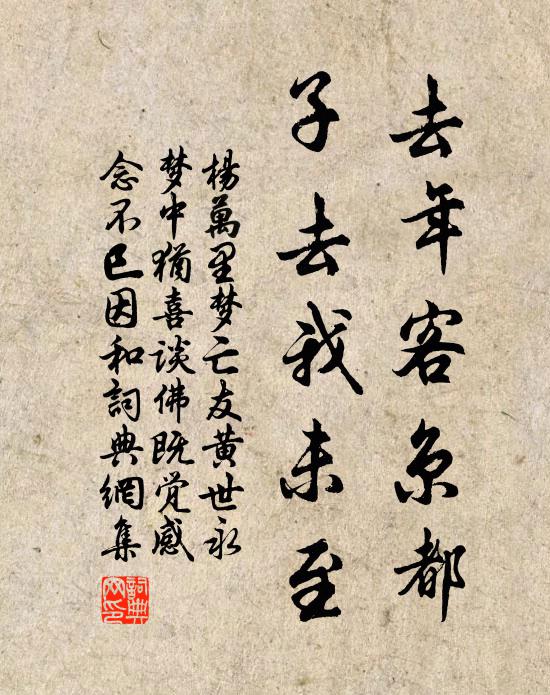 去年客京都
子去我未至
楊萬里梦亡友黄世永
梦中猶喜谈佛既觉感
念不已因和詞典網集
詞典网印